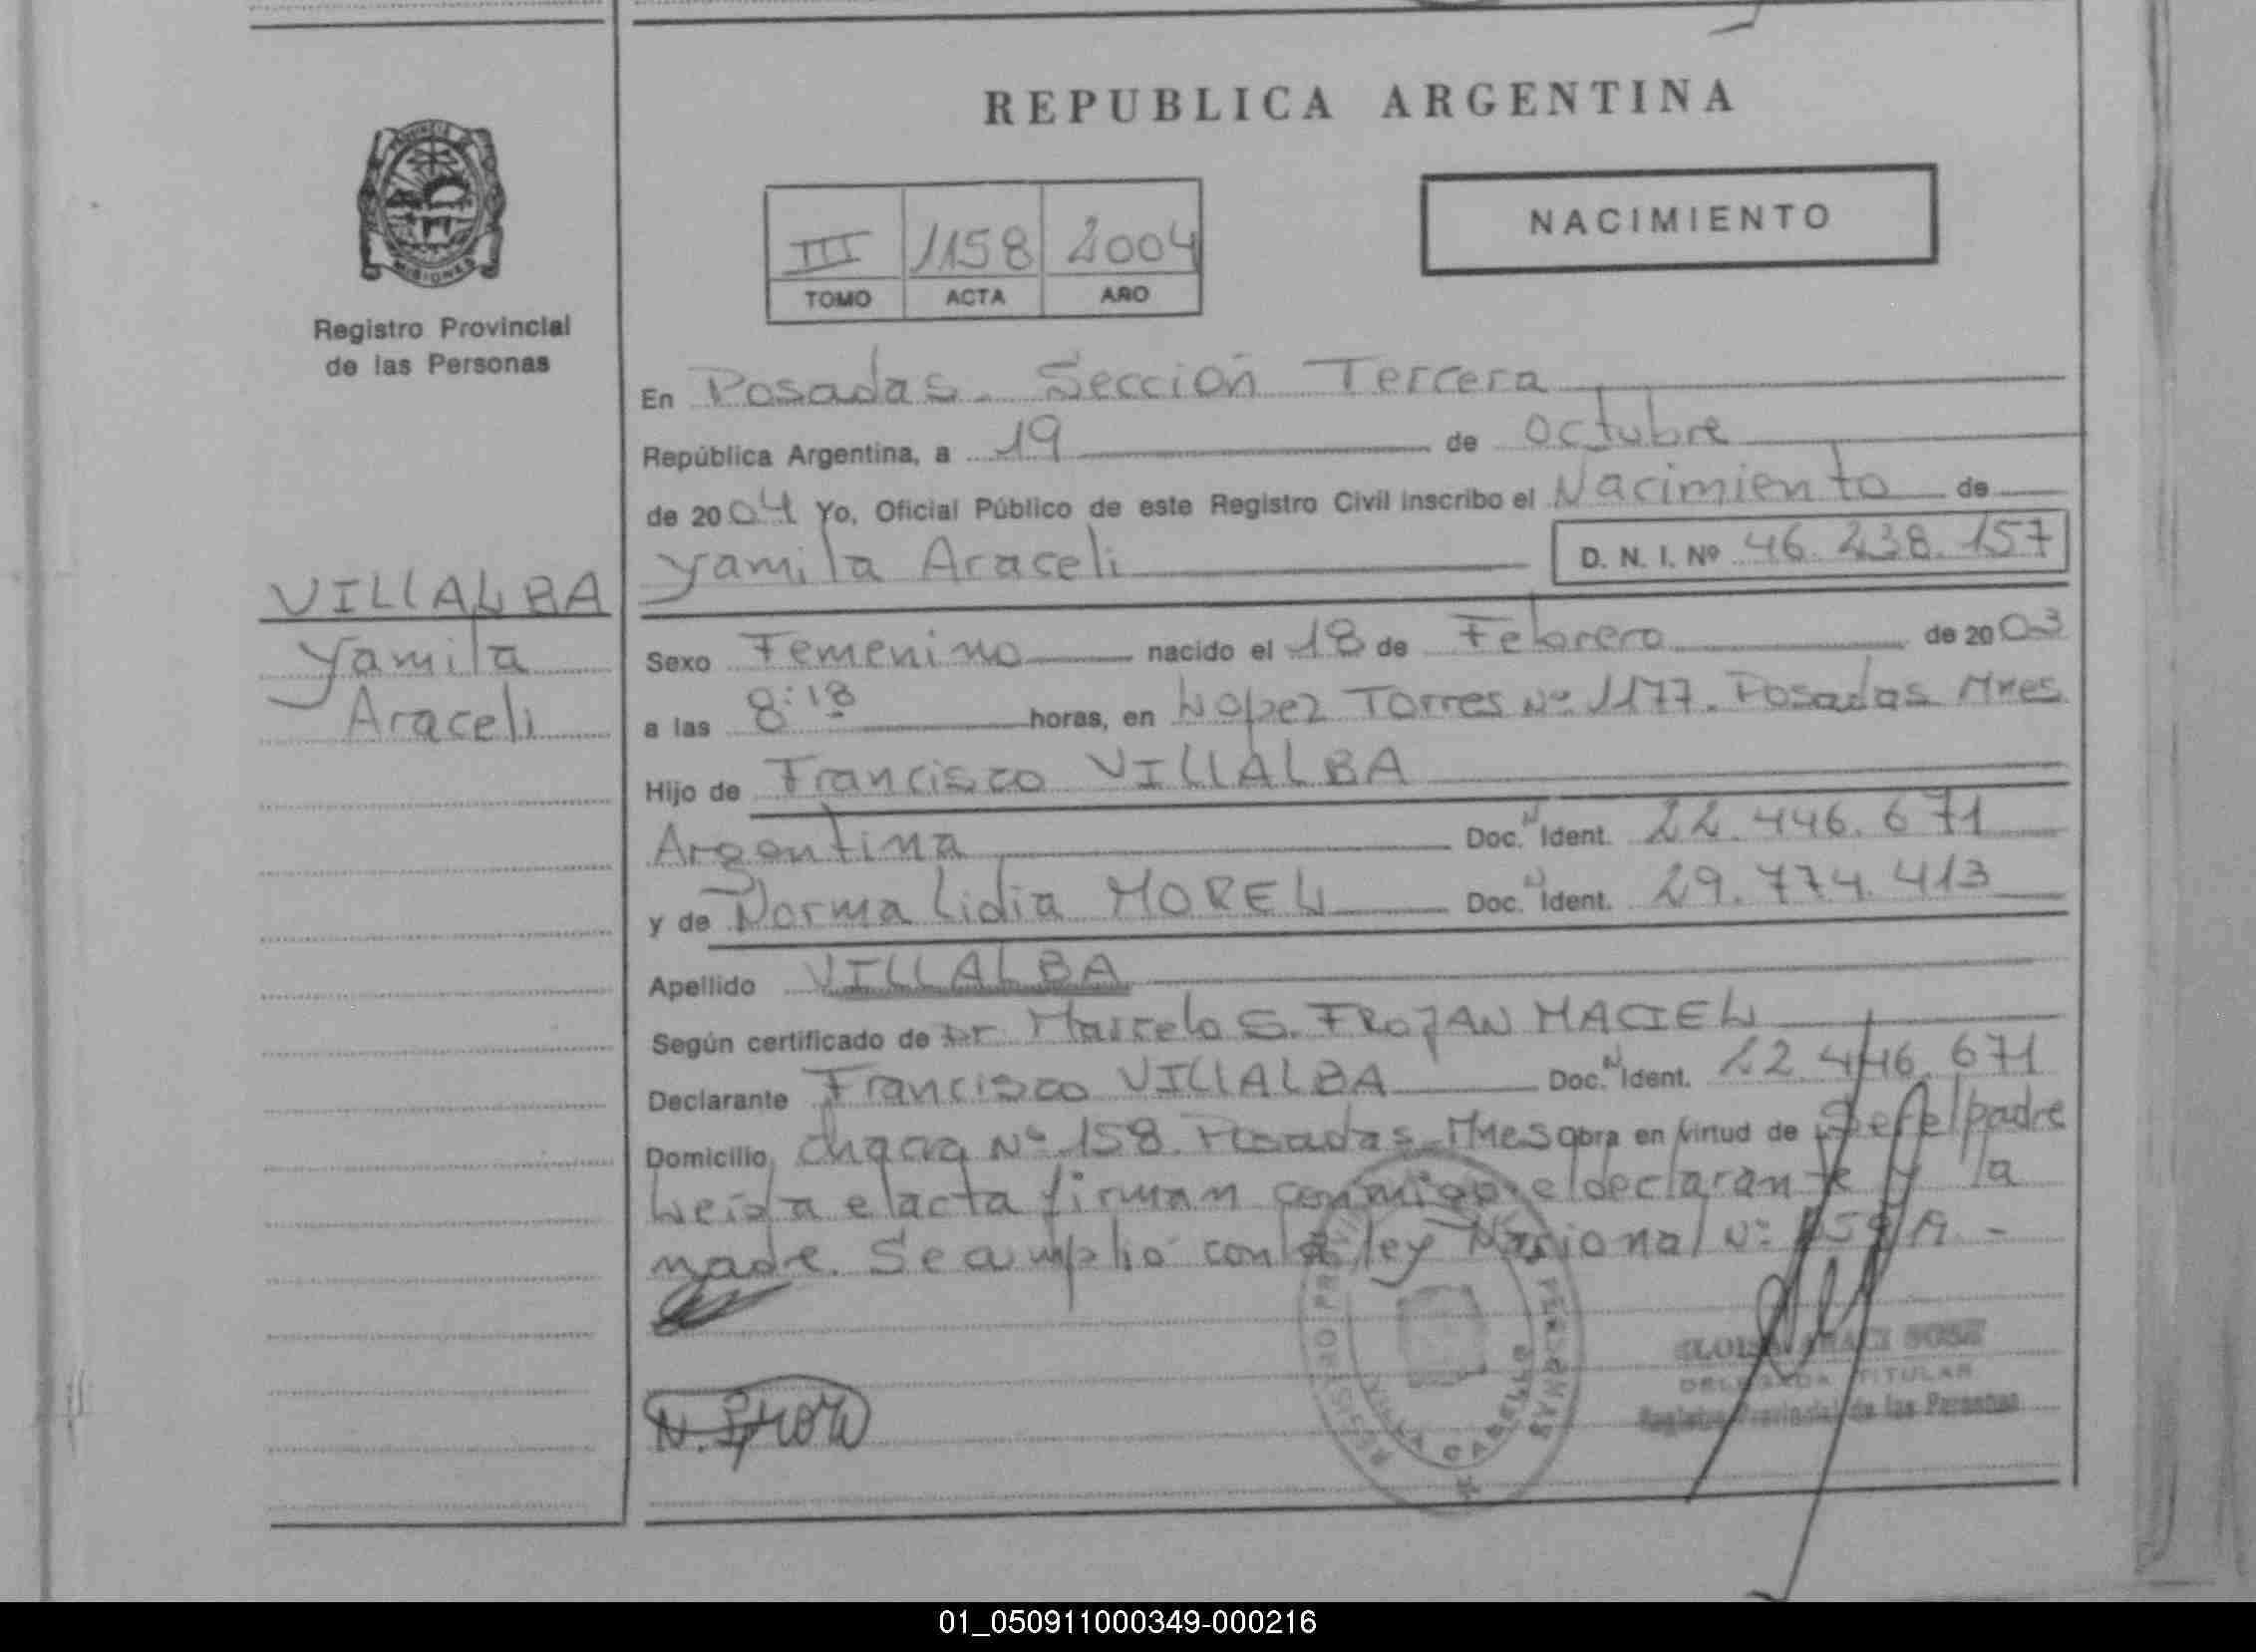 REPUBLICA ARGENTINA
PROVINCIA
MISIONES
Registro Provincial
de las Personas
III 1158 2004
TOMO ACTA AÑO
NACIMIENTO
En Posadas - Sección Tercera
República Argentina, a 19 de octubre
de 2004 Yo, Oficial Público de este Registro Civil inscribo el Nacimiento de
Yamila Araceli D. N. I. Nº 46.238.157
VILLALBA
Yamila
Araceli
Sexo Femenino nacido el 18 de Febrero de 2003
a las 8:18 horas, en Lopez Torres Nº 1177. Posadas Mnes
Hijo de Francisco VILLALBA
Argentina Doc. N Ident. 22.446.671
y de Norma Lidia MOREL Doc. N Ident. 29.774.413
Apellido VILLALBA
Según certificado de Dr Marcelo S. FROJAN MACIEL
Declarante Francisco VILLALBA Doc. N Ident. 22.446.671
Domicilio Chacra Nº 158. Posadas - Mnes obra en virtud de Ser el padre
Leida el acta firman conmigo el declarante y la
madre. Se cumplió con la ley Nacional Nº
N. 
REGISTRO PERSONAS
VILLA CABELLO
ARACI SOSA
DELEGADA TITULAR
Registro Provincial de las Personas
01_050911000349-000216